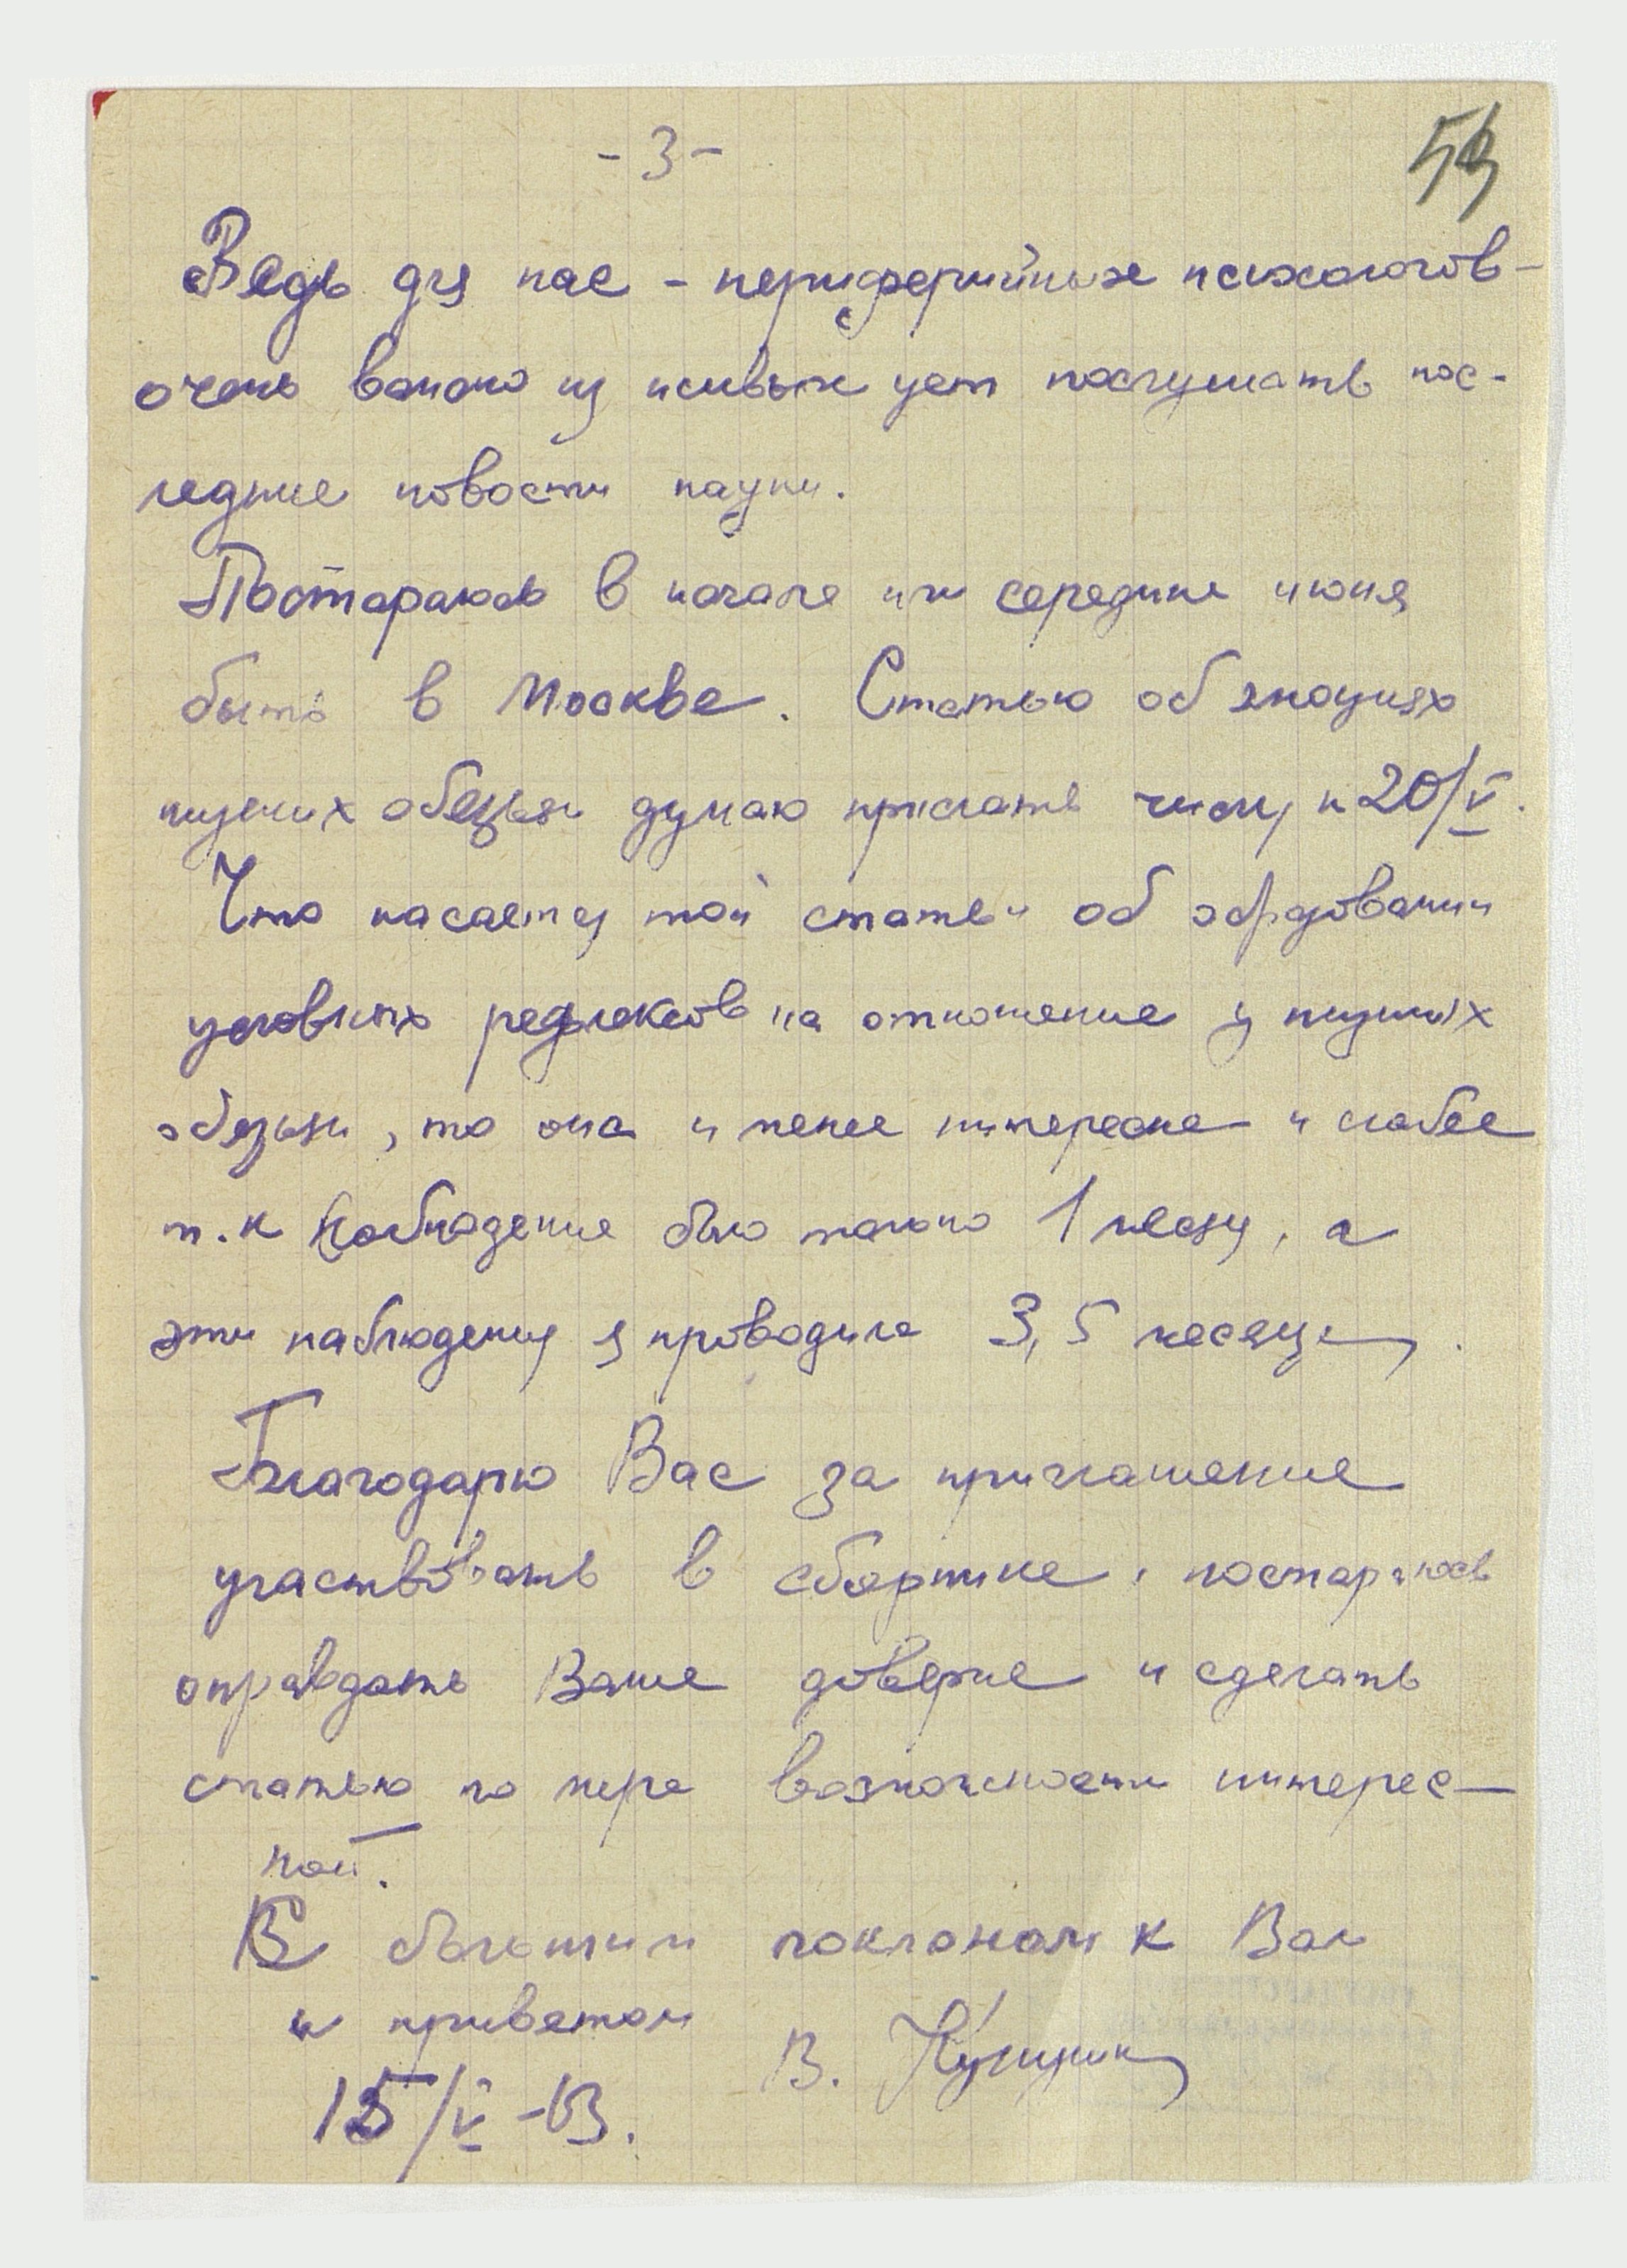 - 3 -
59
Ведь для нас - периферийных психологов -
очень важно из живых уст послушать пос-
ледние новости науки.
Постараюсь в начале или середине июня
быть в Москве. Статью об эмоциях
низших обезьян думаю прислать числу к 20/V.
Что касается той статьи об образовании
условных рефлексов на отношение у низших
обезьян, то она и менее интересна и слабее
т.к наблюдение было только 1 месяц, а
эти наблюдения я проводила 3,5 месяца.
Благодарю Вас за приглашение
участвовать в сборнике, постараюсь
оправдать Ваше доверие и сделать
статью по мере возможности интерес-
ной.
С большим поклоном к Вам
и приветом
В.
15/V -63.